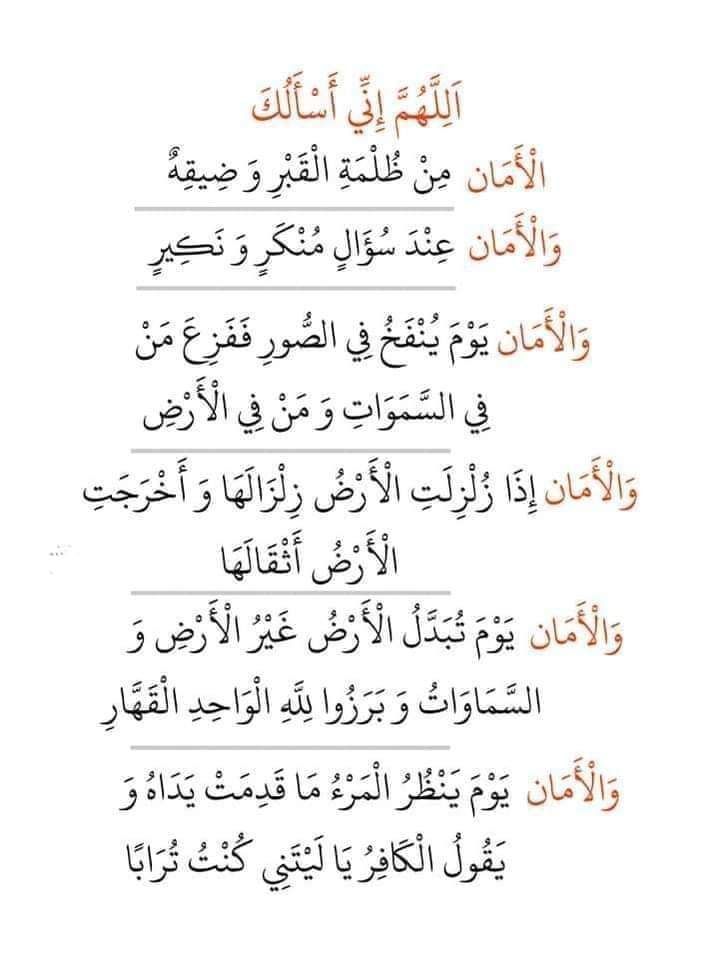 اَللَّهُمَّ إِنِّي أَسْأَلُكَ
الْأَمَان مِنْ ظُلْمَةِ الْقَبْرِ وَ ضِيقِهٌ
وَالْأَمَان عِنْدَ سُؤَالٍ مُنْكَرٍ وَ نَكِيرٍ
وَالْأَمَان يَوْمَ يُنْفَخُ فِي الصُّورِ فَفَزِعَ مَنْ
فِي السَّمَوَاتِ وَ مَنْ فِي الْأَرْضِ
وَالْأَمَان إِذَا زُلْزِلَتِ الْأَرْضُ زِلْزَالَهَا وَ أَخْرَجَتِ
الْأَرْضُ أَثْقَالَهَا
وَالْأَمَان يَوْمَ تُبَدَّلُ الْأَرْضُ غَيْرُ الْأَرْضِ وَ
السَّمَاوَاتُ وَ بَرَزُوا لِلَّهِ الْوَاحِدِ الْقَهَّارِ
وَالْأَمَان يَوْمَ يَنْظُرُ الْمَرْءُ مَا قَدِمَتْ يَدَاهُ وَ
يَقُولُ الْكَافِرُ يَا لَيْتَنِي كُنْتُ تُرَابًا